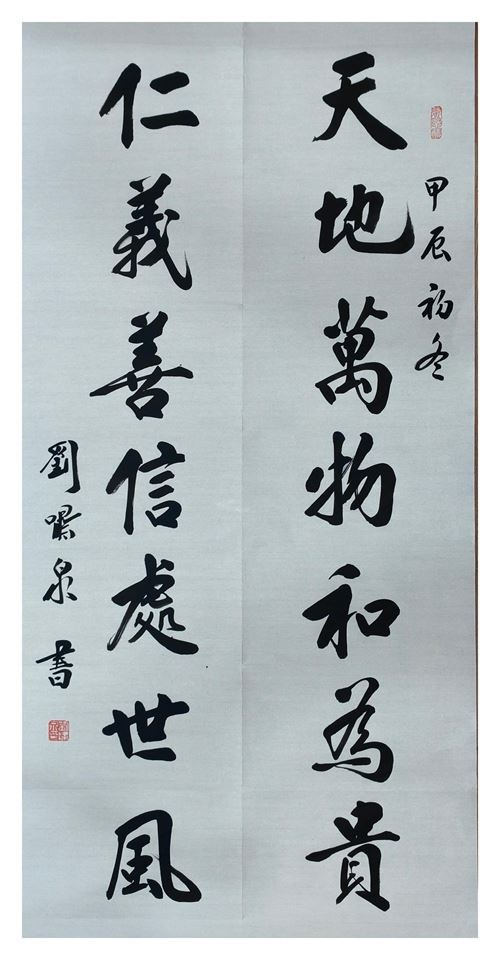 甲辰初冬
天地萬物和為貴
仁義善信處世風
劉㗲泉書